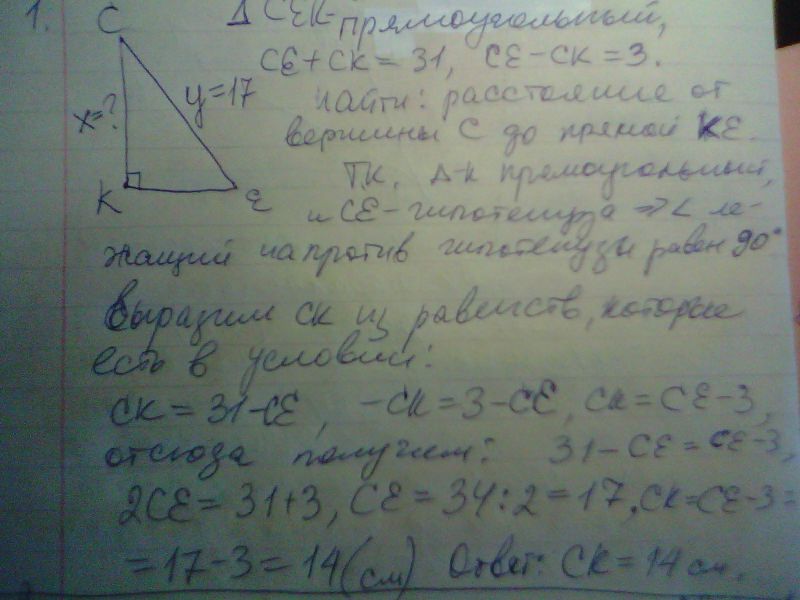 1.
C
Δ CEK - прямоугольный,
CE + CK = 31, CE - CK = 3.
y = 17
x = ?
Найти: расстояние от
вершины C до прямой KE.
K
E
Т.к. Δ-к прямоугольный,
и CE - гипотенуза => ∠ ле-
жащий напротив гипотенузы равен 90°
Выразим CK из равенств, которые
есть в условии:
CK = 31 - CE, -CK = 3 - CE, CK = CE - 3,
отсюда получим: 31 - CE = CE - 3,
2CE = 31 + 3, CE = 34 : 2 = 17, CK = CE - 3 =
= 17 - 3 = 14 (см) Ответ: CK = 14 см.